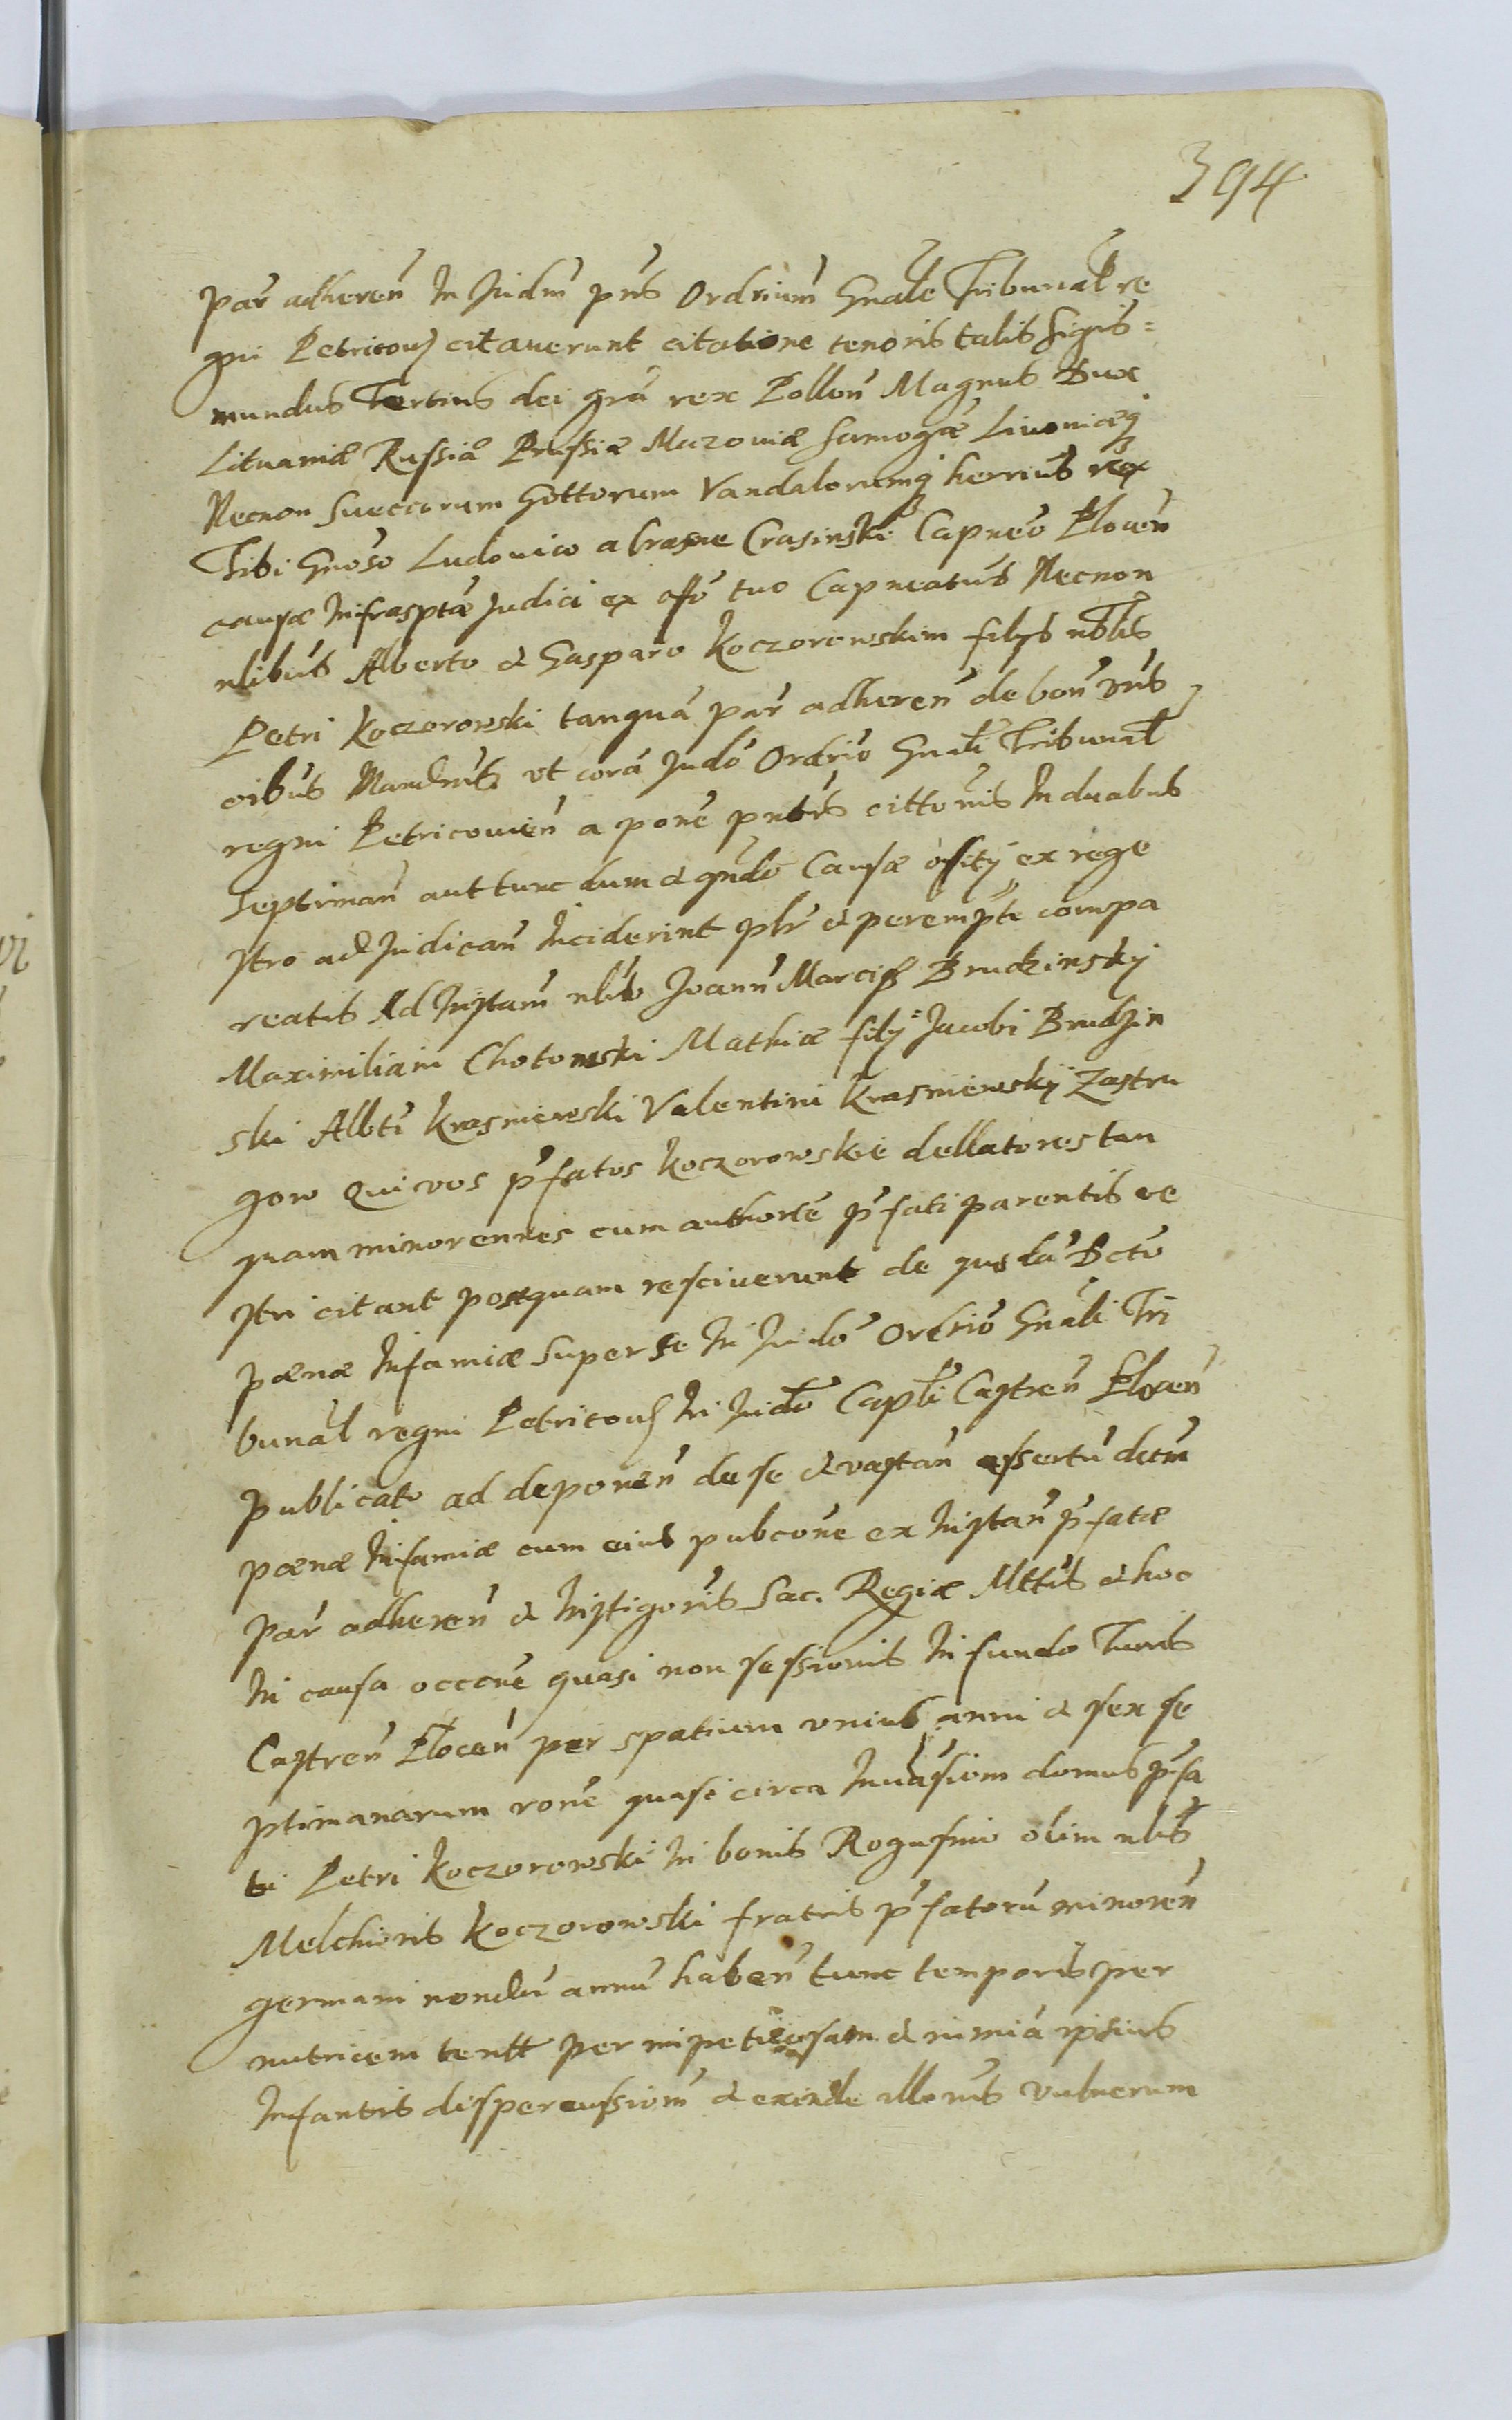 394
par adheren In Judm pns Ordrium Gnale Tribunal re
gni Petricou citauerunt citatione tenoris talis Sigis=
mundus Tertius dei gra rex Pollon Magnus Dux
Lituaniæ Russiæ Prussiæ Mazouiæ Samogæ Liuoniæq
Necnon Sueccorum Gottorum Vandalorumq herrius rex
Tibi Gnoso Ludouico a Crasne Crasinski Capneo Plocen
causæ Infrasptæ Judici ex offo tuo Capneatus Necnon
nlibus Alberto & Gasparo Koczorowskim filys nblis
Petri Koczorowski tanquā par adheren de bon vris
oibus Mandmus vt corā Judo Ordrio Gnali Tribunal
regni Petricouien a pone pntis cittonis In duabus
septiman aut tunc dum & qndo Causæ offitij ex rege
stro ad Judican Inciderint plr & perempte compa
reatis Ad Instam nblis Joann Marcis Brudzinsky
Maximiliani Chotomski Mathiæ fily Jacobi Brudzin
ski Albti Krasniewski Valentini Krasniewsky Zastru
gow Qui vos pfatos Koczorowskie dellatores tan
quam minorennes cum authorte pfati parentis ve
stri citant postquam resciuerunt de quodā Dcto
pœnæ Infamiæ super se In Judo Ordrio Gnali Tri
bunal regni Petricou In Judo Capli Castren Plocen
publicato ad deponen de se & vastan assertū dctm
pœnæ Infamiæ cum eius pubcone ex Instan pfatæ
par adheren & Instigoris Sac. Regiæ Mttis & hoc
In causa occone quasi non sessionis In fundo Turris
Castren Plocen per spatium vnius anni & sex se
ptimanarum rone quasi circa Inuasiom domus pfa
ti Petri Koczorowski In bonis Rogusmio olim nbls
Melchioris Koczorowski fratris pfatorū minoren
germani nondū annū haben tunc temporis per
nutricem tentt per impetuosam & nimiā ipsius
Infantis dispercussiom & exinde illoris vulnerum